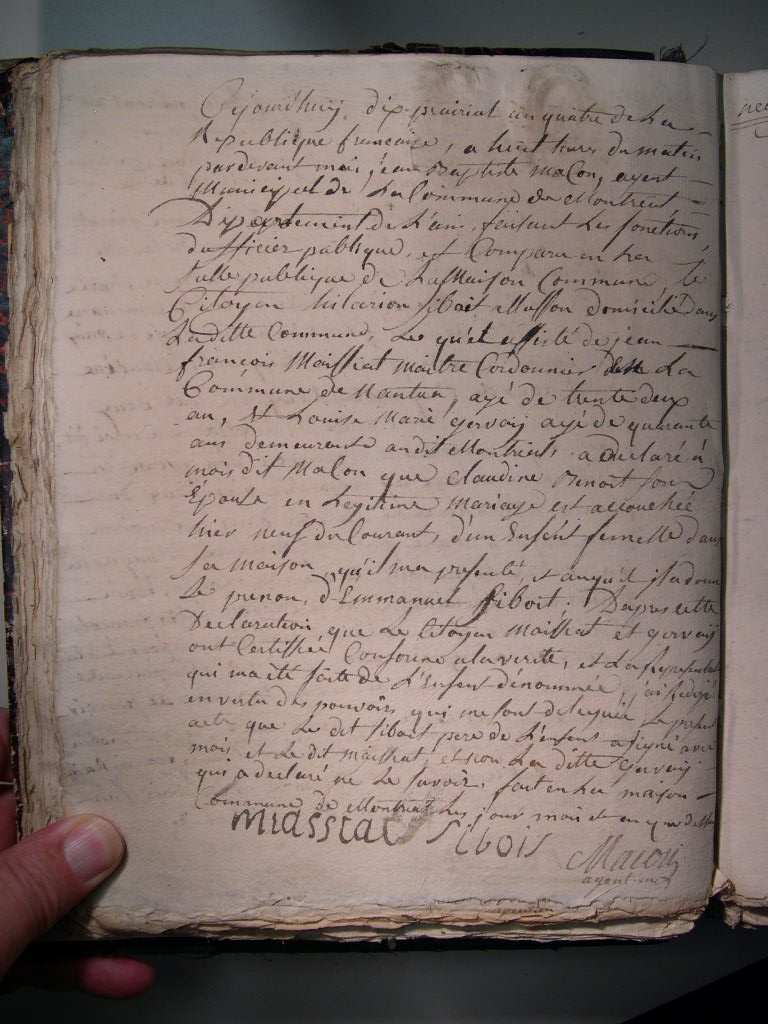 Cejourd'huy, dix prairial an quatre de La
Republique française, a huit heures du matin
pardevant mois jean Baptiste Maçon, agent
Municipal de La Commune de Montreal
Département de L'ain, faisant Les fonctions
d'officier publique, est Comparu en La
salle publique de La Maison Commune, le
Citoyen hilarion Sibois Masson domicilié dans
La ditte Commune, Le qu'el assisté de jean
françois Maissiat Maître Cordonnier de La
Commune de Nantua, agé de trente deux
an, et Louise Marie gervais agé de quarante
ans demeurente au dit Montreal a declaré à
mois dit Maçon que Claudine Benoit son
Epouse en Legitime Mariage est accouchée
hier neuf du Courant, d'un Enfent femelle dans
sa maison, qu'il ma presenté, et auquel il a donné
Le prenom, d'Emmanuel Sibois; Dapres cette
Declaration que Le Citoyen Maissiat et gervais
ont Certiffiée Conforme a la verité, et La representation
qui ma été faite de L'Enfent dénommée, j'ai redigé
en vertu des pouvoirs qui me sont delegués Le present
acte que Le dit Sibois pere de L'enfent a signé avec
mois et Le dit Maissiat, et non La ditte gervais
qui a declaré ne Le savoir. fait en La maison
Commune de Montreal Les jour mois et an que dessus
miassiat Sibois
Macon
agent